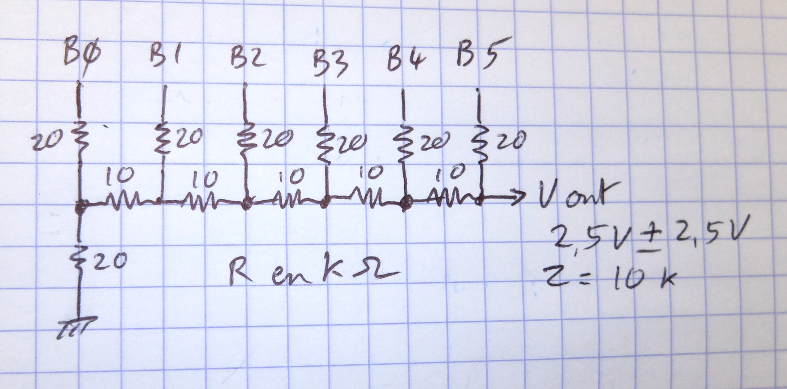 BØ B1 B2 B3 B4 B5
20 20 20 20 20 20
10 10 10 10 10
Vout
20 R en kΩ 2,5V ± 2,5V
Z = 10 k